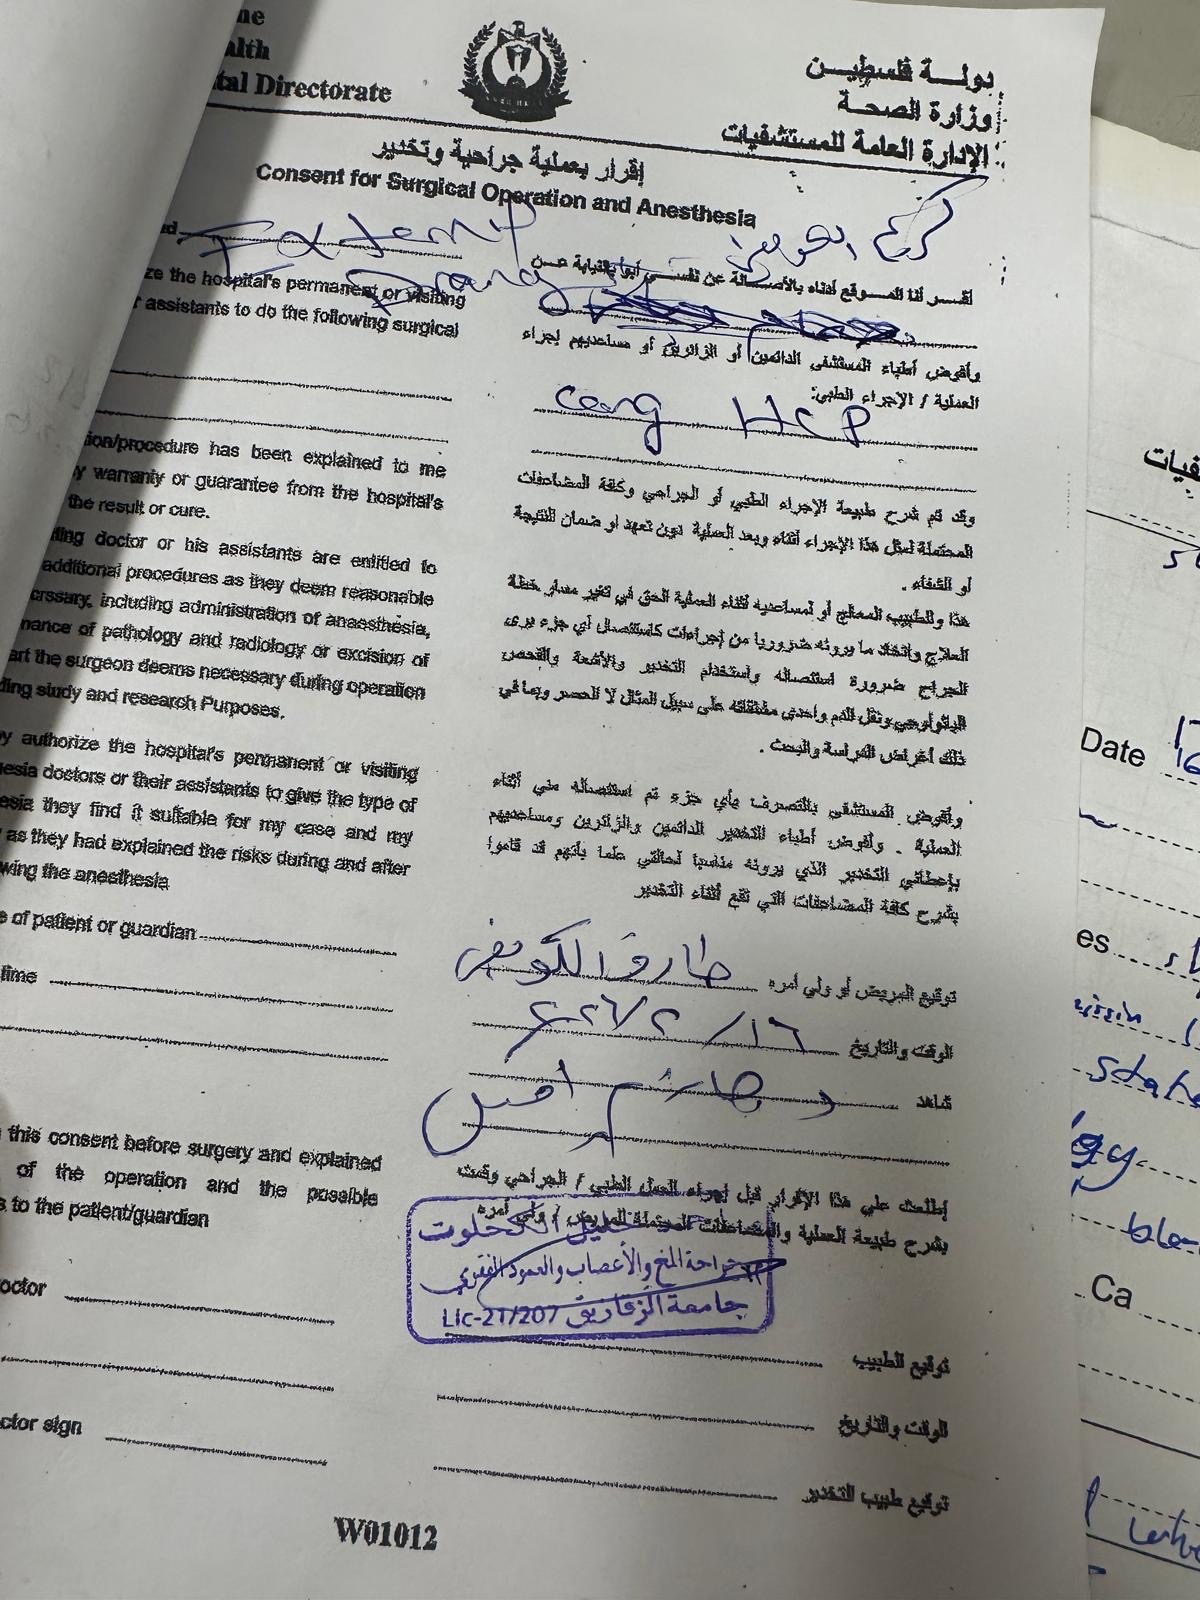 ne
alth
tal Directorate
دولة فلسطين
وزارة الصحة
الإدارة العامة للمستشفيات
إقرار بعملية جراحية وتخدير
Consent for Surgical Operation and Anesthesia
كريم
External
Drang
ze the hospital's permanent or visiting
r assistants to do the following surgical
أقر أنا الموقع أدناه بالأصالة عن نفسي أو بالنيابة عن
وأفوض أطباء المستشفى الدائمين أو الزائرين أو مساعديهم لإجراء
العملية / الإجراء الطبي:
Cong HCP
ion/procedure has been explained to me
y warranty or guarantee from the hospital's
the result or cure.
ding doctor or his assistants are entitled to
additional procedures as they deem reasonable
cessary, including administration of anaesthesia,
mance of pathology and radiology or excision of
art the surgeon deems necessary during operation
ding study and research Purposes.
y authorize the hospital's permanent or visiting
hesia doctors or their assistants to give the type of
esia they find it suitable for my case and my
as they had explained the risks during and after
wing the anesthesia
e of patient or guardian
time
وقد تم شرح طبيعة الإجراء الطبي أو الجراحي وكافة المضاعفات
المحتملة لمثل هذا الإجراء أثناء وبعد العملية دون تعهد او ضمان للنتيجة
أو للشفاء .
هذا وللطبيب المعالج أو لمساعديه أثناء العملية الحق في تغير مسار خطة
العلاج واتخاذ ما يرونه ضروريا من إجراءات كاستئصال أي جزء يرى
الجراح ضرورة استئصاله واستخدام التخدير والأشعة والفحص
الباثولوجي ونقل الدم واحدى مشتقاته على سبيل المثال لا الحصر وبما في
ذلك أغراض الدراسة والبحث .
وأفوض المستشفى بالتصرف بأي جزء تم استئصاله مني أثناء
العملية . وأفوض أطباء التخدير الدائمين والزائرين ومساعديهم
بإعطائي التخدير الذي يرونه مناسبا لحالتي علما بأنهم قد قاموا
بشرح كافة المضاعفات التي تقع أثناء التخدير
توقيع المريض أو ولي أمره طارق
الوقت والتاريخ ٢٠٢٦/٢/١٦
شاهد
this consent before surgery and explained
of the operation and the possible
s to the patient/guardian
octor
ctor sign
إطلعت على هذا الإقرار قبل إجراء العمل الطبي / الجراحي وقمت
بشرح طبيعة العملية والمضاعفات المحتملة للمريض / ولي أمره
خليل الكحلوت
جراحة المخ والأعصاب والعمود الفقري
جامعة الزقازيق Lic-21/207
توقيع الطبيب
الوقت والتاريخ
توقيع طبيب التخدير
W01012
فيات
Date
es
Ca